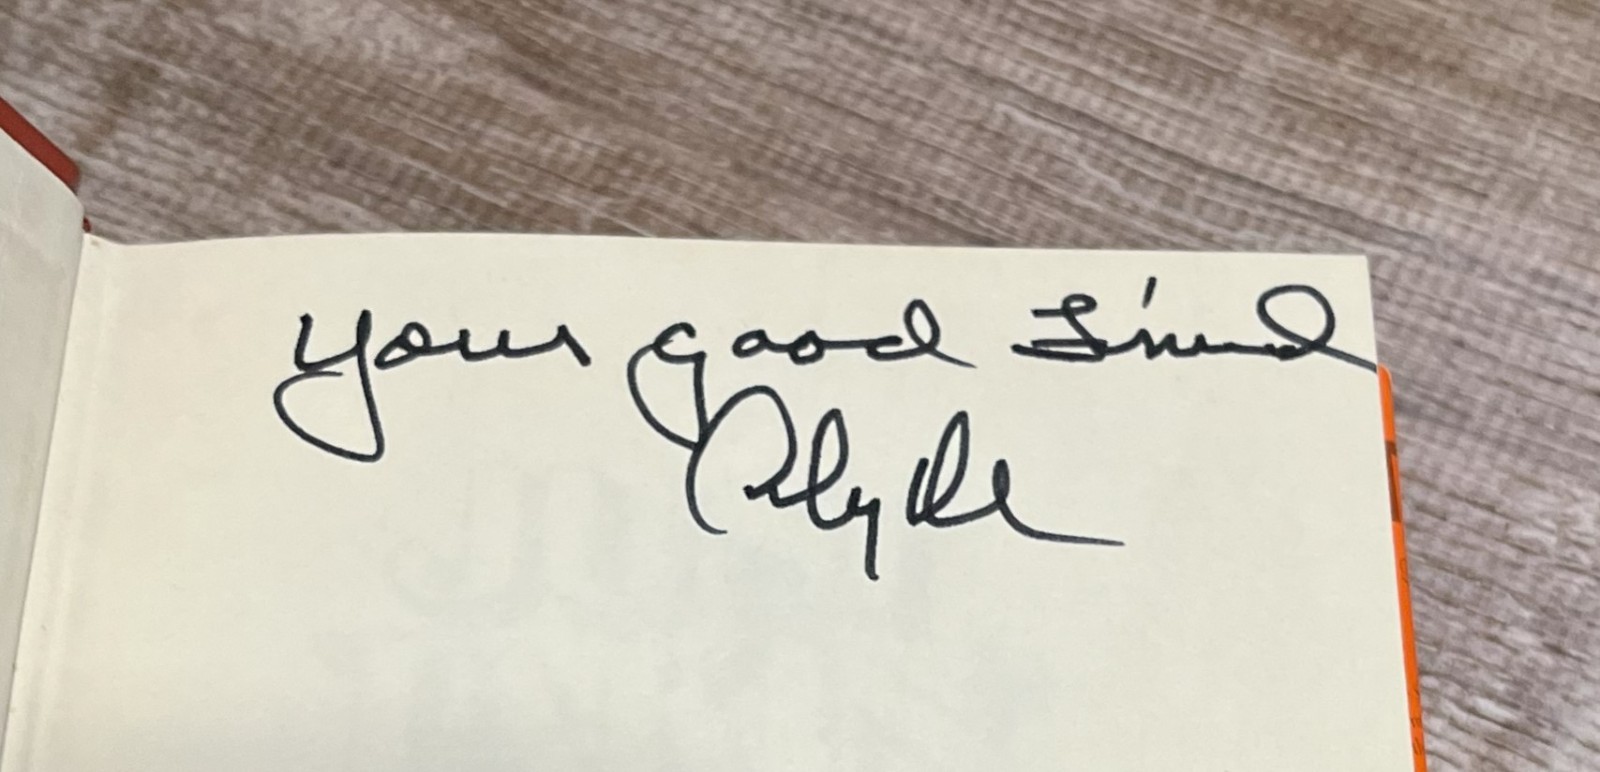 Your good friend
Clyde